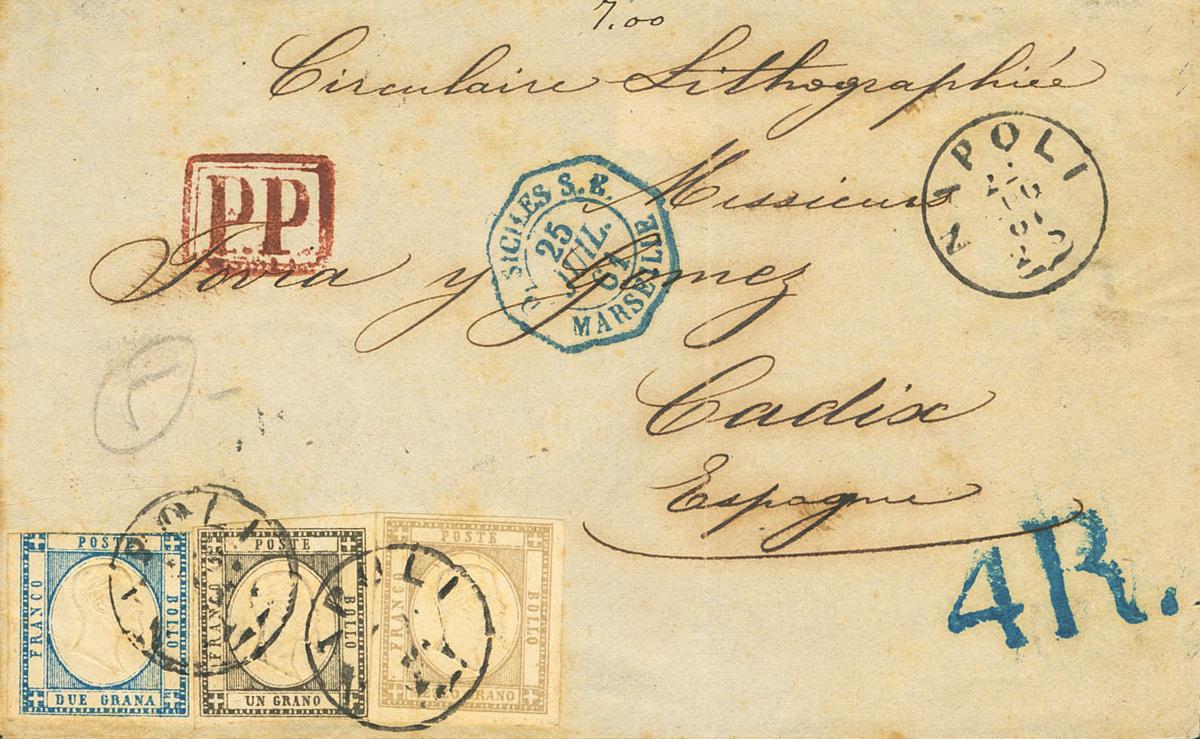 7.00
Circulaire Lithographiée
P.P
2 SICILES S.E.
25
JUIL.
61
MARSEILLE
NAPOLI
Messieurs
Jovia y Gomez
Cadix
Espagne
4R.
POSTE
FRANCO
BOLLO
DUE GRANA
POSTE
FRANCO
BOLLO
UN GRANO
POSTE
FRANCO
BOLLO
GRANO